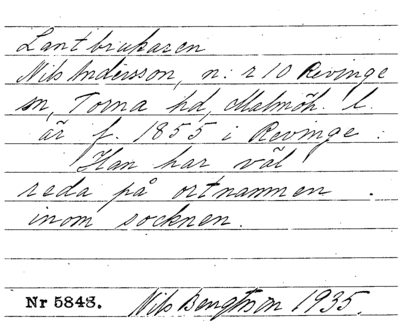 Lantbrukaren
Nils Andersson, n: r 10 Revinge
sn, Torna hd, Malmöh. l.
är f. 1855 i Revinge.
Han har väl
reda på ortnamnen
inom socknen.
Nr 5843. Nils Bengtsson 1935.